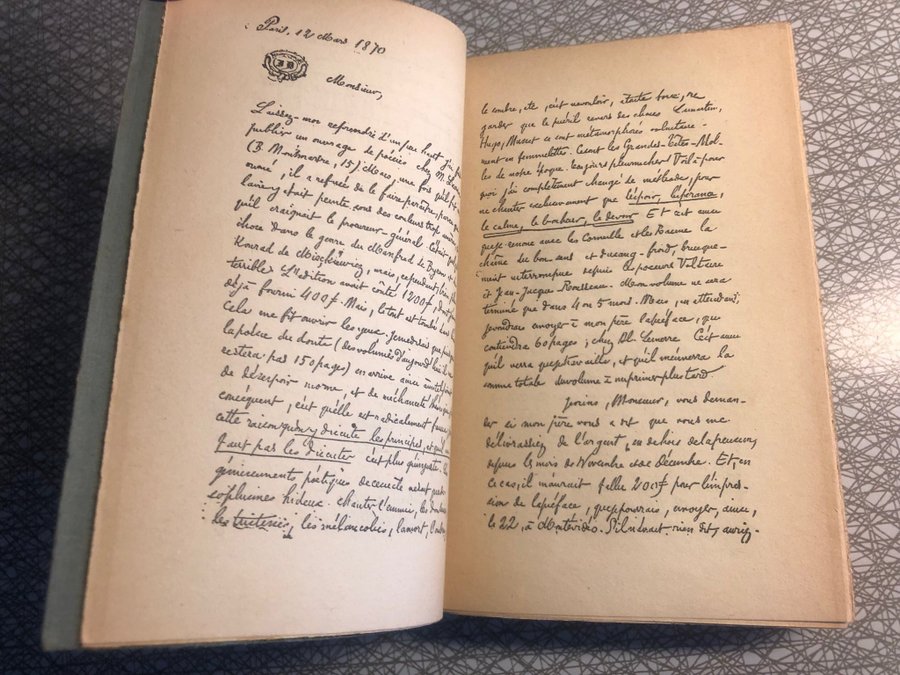 Paris, 12 Mars 1870
J D
Monsieur,
Laissez-moi reprendre d'un peu haut. J'ai fait
publier un ouvrage de poésies chez M. Lacroix
(B. Montmartre, 15). Mais, une fois qu'il fut
imprimé, il a refusé de le faire paraître, parce que
la vie y était peinte sous des couleurs trop amères,
qu'il craignait le procureur-général. C'était quelque
chose dans le genre du Manfred de Byron et du
Konrad de Mickiewicz, mais, cependant, bien plus
terrible. L'édition avait coûté 1200 f, dont j'avais
déjà fourni 400 f. Mais, le tout est tombé
Cela me fit ouvrir les yeux. Je me disais que puisque
la poésie du doute (des volumes d'aujourd'hui il ne
restera pas 150 pages) en arrive ainsi
de désespoir morne, et de méchanceté
conséquent, c'est qu'elle est radicalement fausse
cette raison qu'on y discute les principes, et qu'il ne
faut pas les discuter : c'est plus qu'injuste. Les
gémissements poétiques de ce siècle ne sont que
sophismes hideux. Chanter l'ennui, les douleurs,
les tristesses, les mélancolies, la mort, l'ombre,
le sombre, etc, c'est ne vouloir, à toute force, re
garder que le puéril revers des choses. Lamartine,
Hugo, Musset se sont métamorphosés volontaire-
ment en femmelettes. Ce sont les Grandes-Têtes-Mol-
les de notre époque. Toujours pleurnicher ! Voilà pour
quoi j'ai complètement changé de méthode, pour
ne chanter exclusivement que l'espoir, l'espérance,
le calme, le bonheur, le devoir. Et c'est ainsi
que je renoue avec les Corneille et les Racine la
chaîne du bon-sens et du sang-froid, brusque-
ment interrompue depuis les poseurs Voltaire
et Jean-Jacques Rousseau. Mon volume ne sera
terminé que dans 4 ou 5 mois. Mais, en attendant,
je voudrais envoyer à mon père la préface, qui
contiendra 60 pages ; chez Al. Lemerre. C'est ainsi
qu'il verra que je travaille, et qu'il m'enverra la
somme totale du volume à imprimer plus tard.
Je viens, Monsieur, vous deman-
der si mon père vous a dit que vous me
délivrassiez de l'argent, en dehors de la pension,
depuis les mois de Novembre et de décembre. Et, en
ce cas, il m'aurait fallu 200 f pour l'impres-
sion de la préface, que je pourrais envoyer, ainsi,
le 22, à Montevideo. S'il n'avait rien dit, auriez-